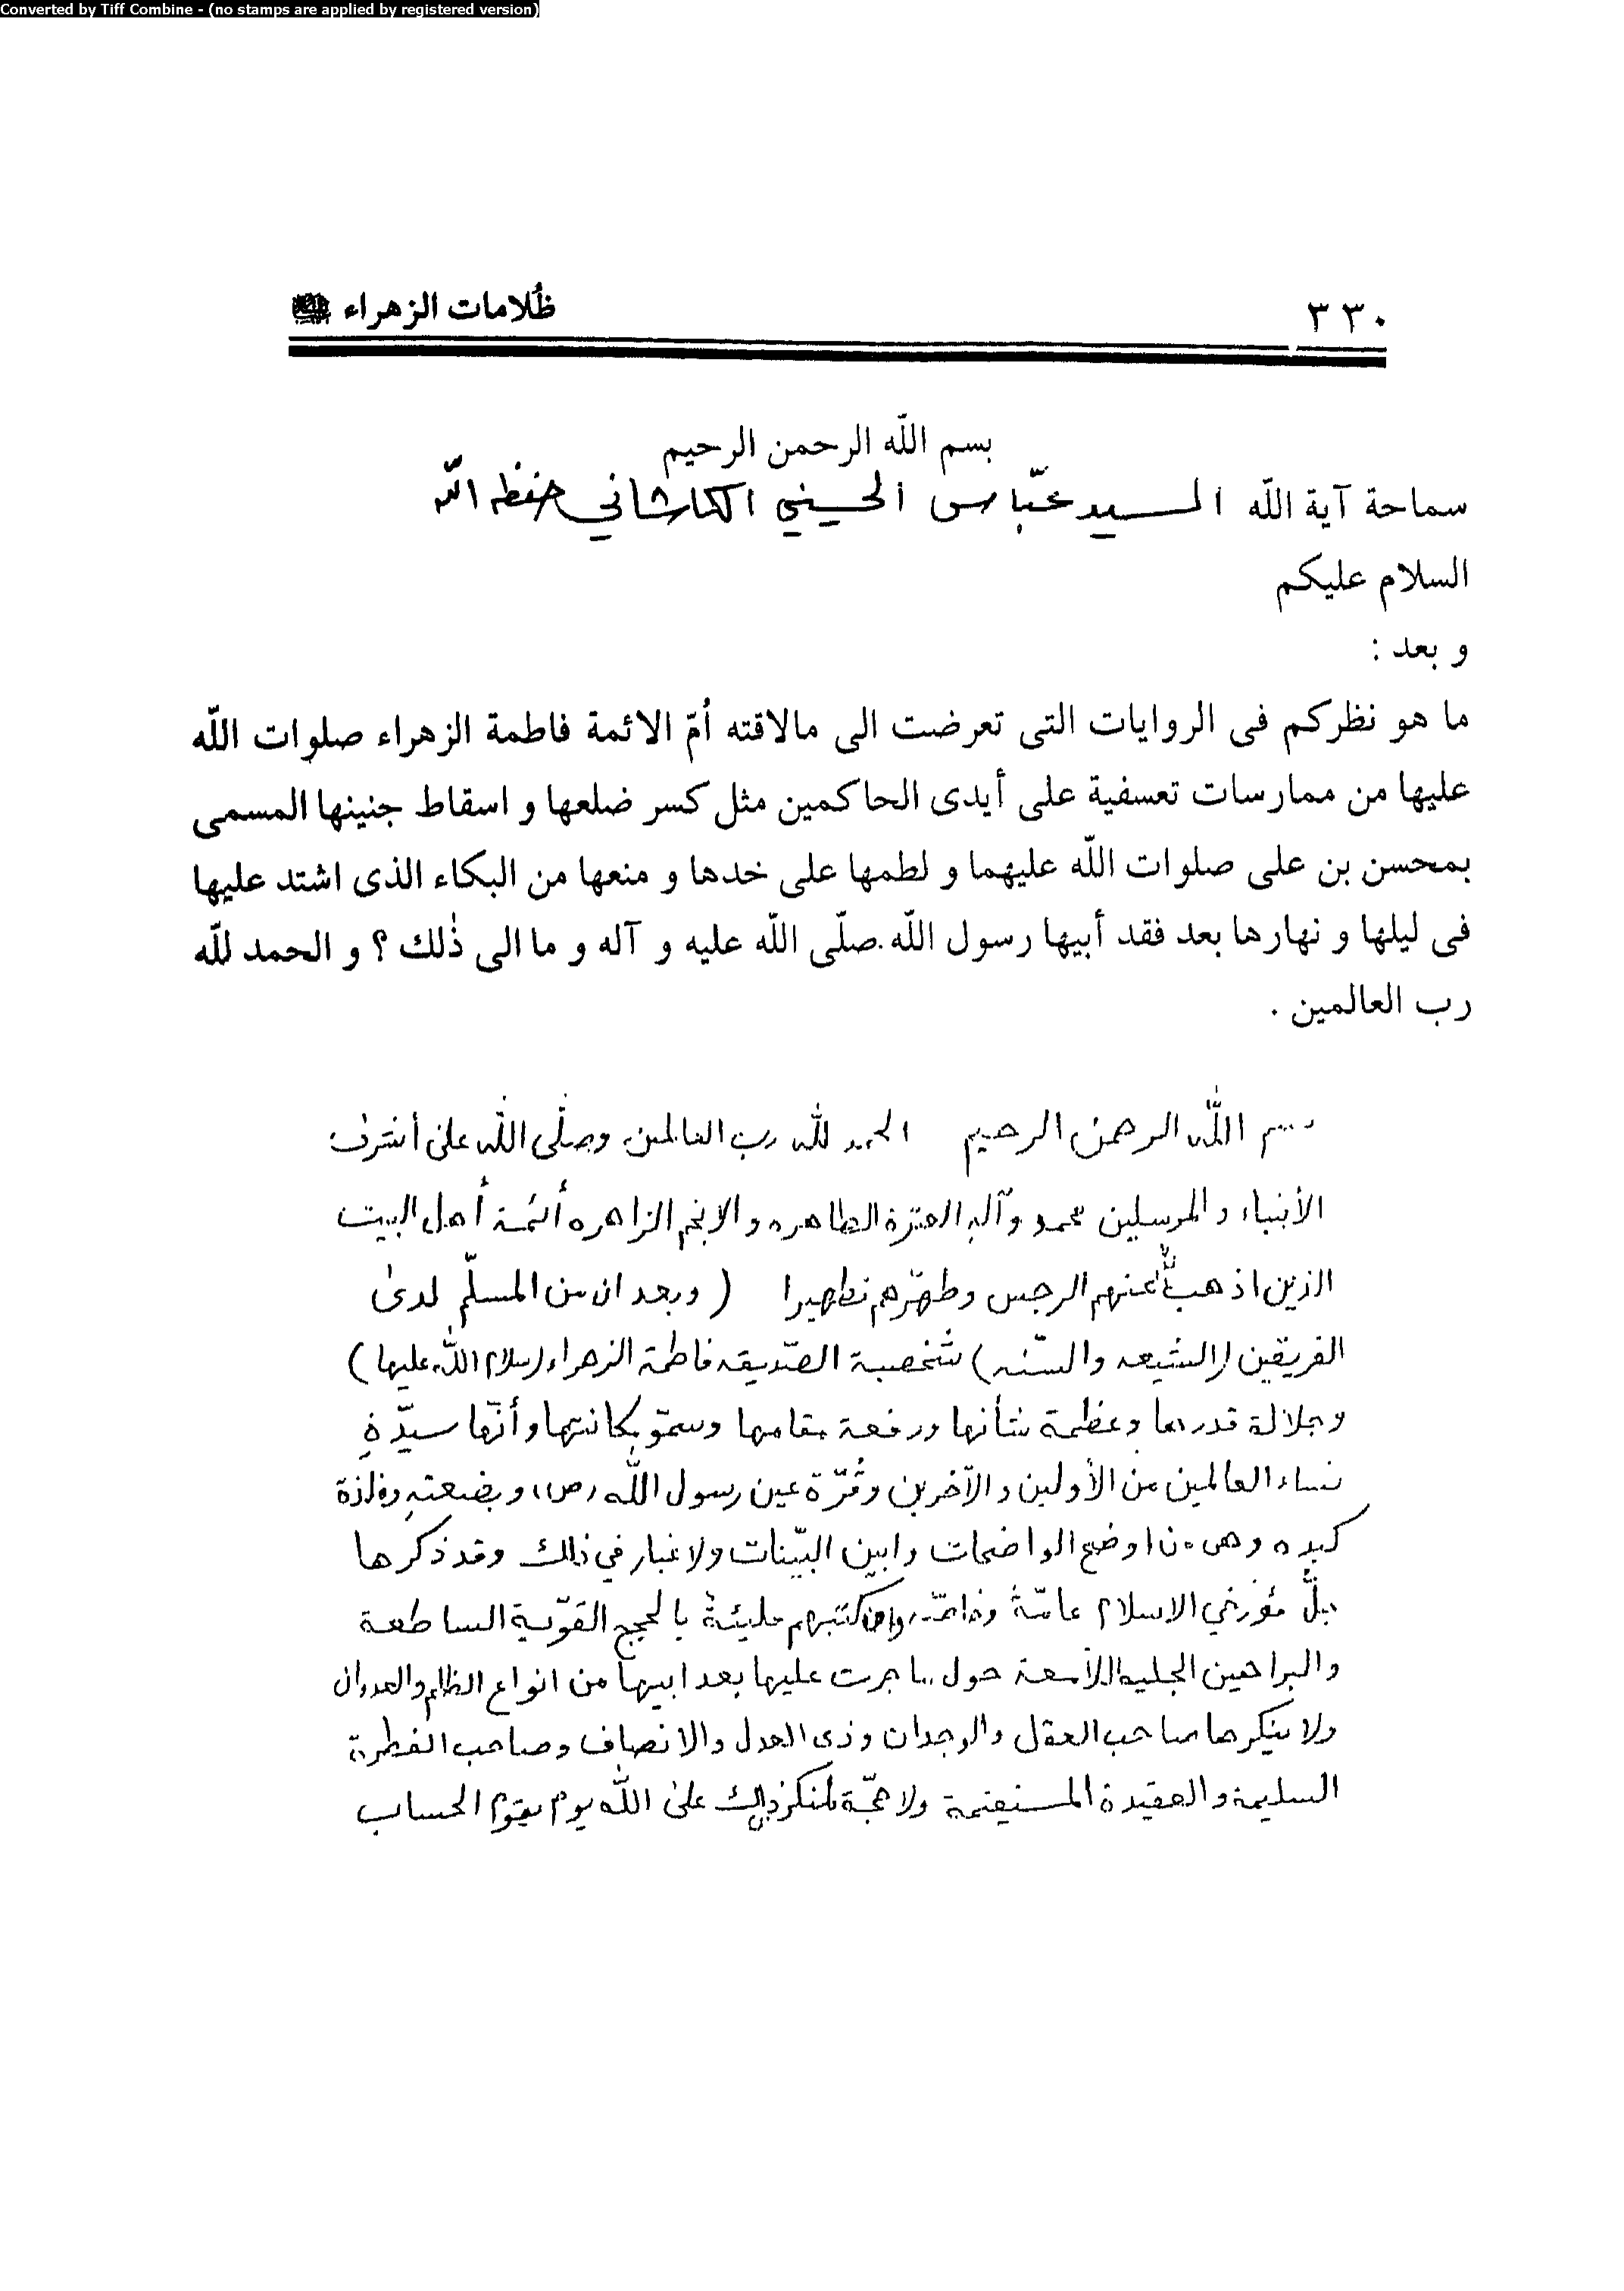 Converted by Tiff Combine - (no stamps are applied by registered version)
٣٣٠
ظُلامات الزهراء
بسم اللّه الرحمن الرحيم
سماحة آية اللّه السيد عبّاس الحسيني الكاشاني حفظه اللّه
السلام عليكم
و بعد :
ما هو نظركم فى الروايات التى تعرضت الى مالاقته اُمّ الائمة فاطمة الزهراء صلوات اللّه
عليها من ممارسات تعسفية على أيدى الحاكمين مثل كسر ضلعها و اسقاط جنينها المسمى
بمحسن بن على صلوات اللّه عليهما و لطمها على خدها و منعها من البكاء الذى اشتد عليها
فى ليلها و نهارها بعد فقد أبيها رسول اللّه صلّى اللّه عليه و آله و ما الى ذٰلك ؟ و الحمد للّه
رب العالمين .
بسم اللّه الرحمن الرحيم الحمد للّه رب العالمين وصلّى اللّه على أشرف
الأنبياء والمرسلين محمد وآله العترة الطاهره والانجم الزاهره أئمة أهل البيت
الذين اذهب اللّه عنهم الرجس وطهّرهم تطهيرا ( وبعد ان من المسلّم لدىٰ
الفريقين (الشيعه والسّنه) شخصية الصّديقه فاطمة الزهراء (سلام اللّه عليها)
وجلالة قدرها وعظمة شأنها ورفعة مقامها وسموّ مكانتها وأنّها سيّدة
نساء العالمين من الأولين والآخرين وقُرّة عين رسول اللّه (ص) وبضعته وفلذة
كبده وهى من اوضح الواضحات وابين البيّنات ولا غبار في ذلك وقد ذكرها
مؤرخي الاسلام عامّةً وخاصّة وان كتبهم مليئة بالحجج القوّية الساطعة
والبراهين الجليه اللامعة حول ما جرت عليها بعد ابيها من انواع الظلم والعدوان
ولا ينكرها صاحب العقل والوجدان وذى العدل والانصاف وصاحب الفطرة
السليمة والعقيدة المستقيمة ولا حجّة لمنكر ذلك علىٰ اللّه يوم يقوم الحساب